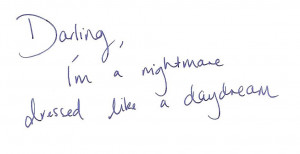 Darling,
I'm a nightmare
dressed like a daydream